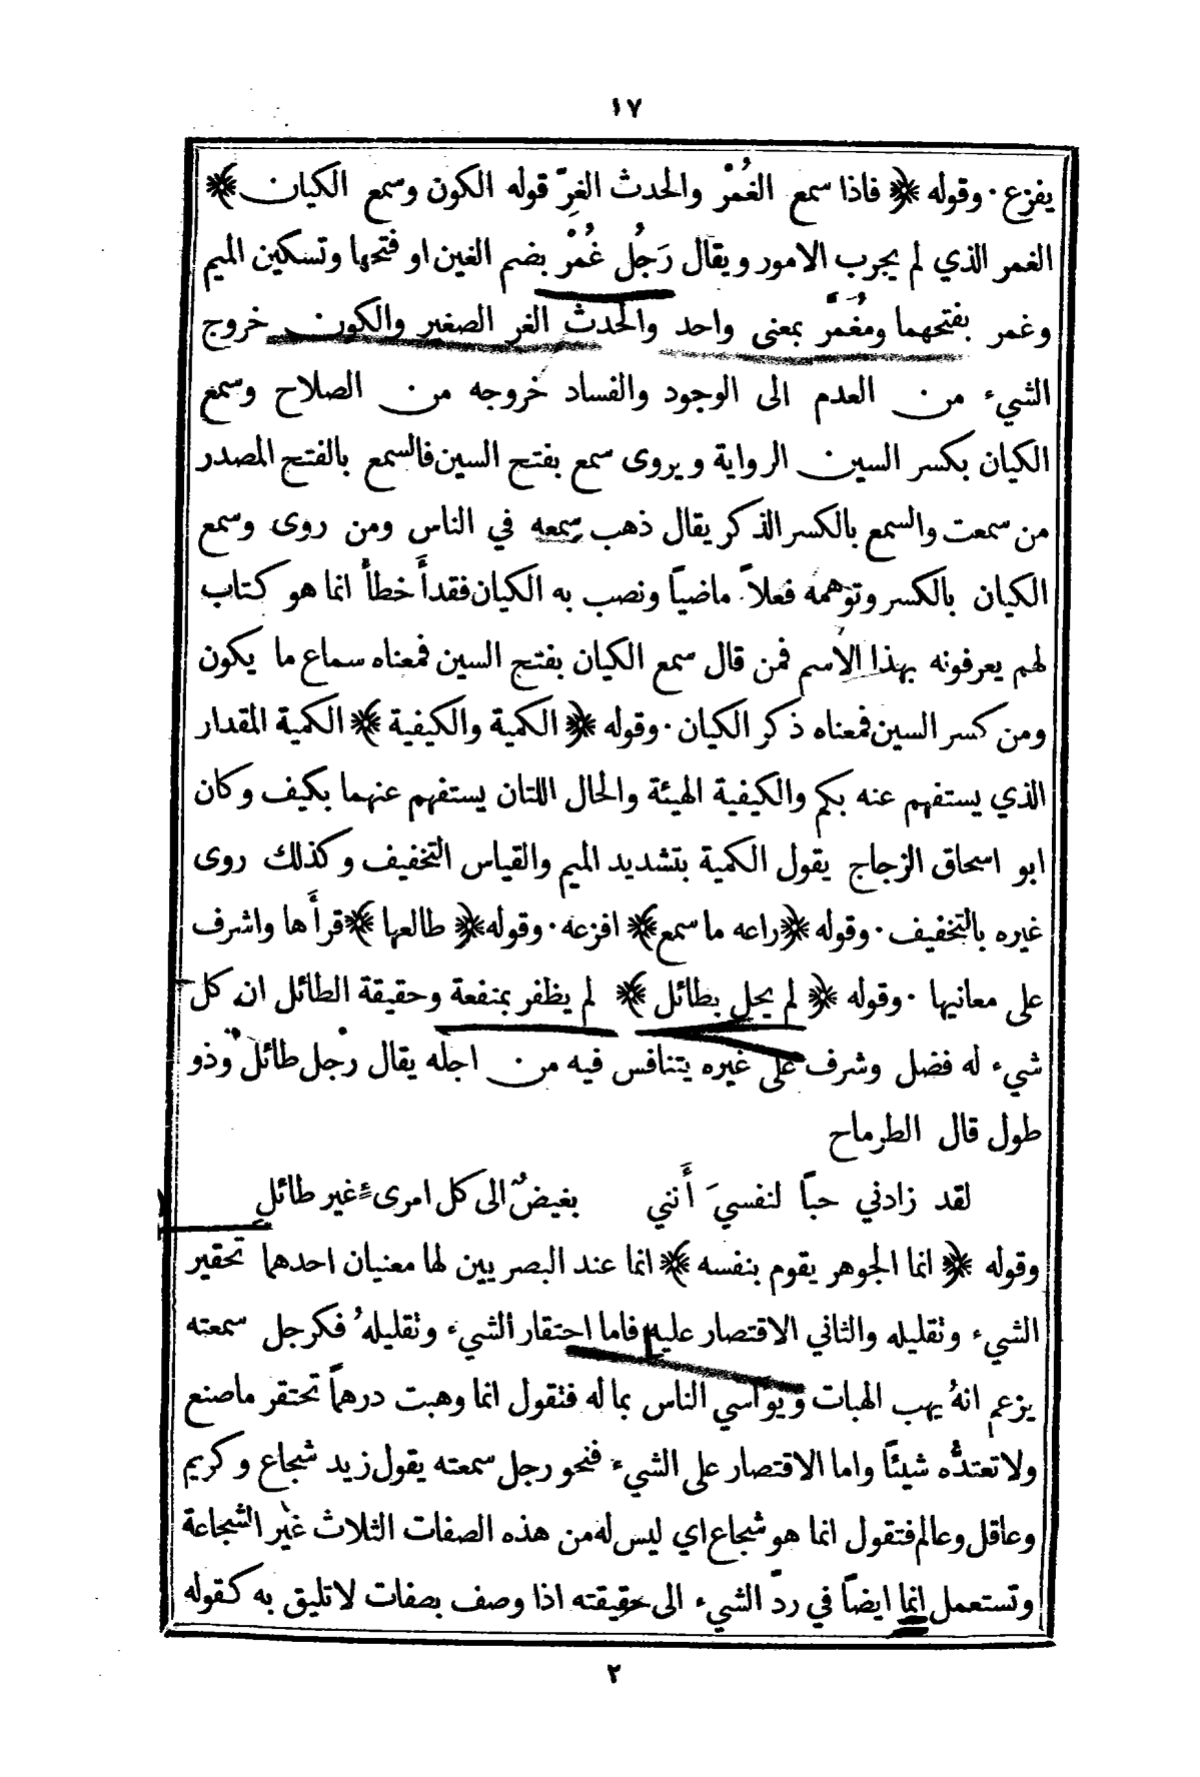 ١٧
يفزع · وقوله ﴿ فاذا سمع الغُمْرُ والحدث الغِرّ قوله الكون وسمع الكيان ﴾
الغمر الذي لم يجرب الامور ويقال رَجُل غُمْرُ بضم الغين او فتحها وتسكين الميم
وغمر بفتحهما ومُغَمَّر بمعنى واحد والحدث الغر الصغير والكون خروج
الشيء من العدم الى الوجود والفساد خروجه من الصلاح وسمع
الكيان بكسر السين الرواية ويروى سمع بفتح السين فالسمع بالفتح المصدر
من سمعت والسمع بالكسر الذكر يقال ذهب سِمعه في الناس ومن روى وسمع
الكيان بالكسر وتوهمه فعلاً ماضياً ونصب به الكيان فقد أَخطأ انما هو كتاب
لهم يعرفونه بهذا الأسم فمن قال سمع الكيان بفتح السين فمعناه سماع ما يكون
ومن كسر السين فمعناه ذكر الكيان · وقوله ﴿ الكمية والكيفية ﴾ الكمية المقدار
الذي يستفهم عنه بكم والكيفية الهيئة والحال اللتان يستفهم عنهما بكيف وكان
ابو اسحاق الزجاج يقول الكمية بتشديد الميم والقياس التخفيف وكذلك روى
غيره بالتخفيف · وقوله ﴿ راعه ما سمع ﴾ افزعه · وقوله ﴿ طالعها ﴾ قرأَها واشرف
على معانيها · وقوله ﴿ لم يحل بطائل ﴾ لم يظفر بمنفعة وحقيقة الطائل ان كل
شيء له فضل وشرف على غيره يتنافس فيه من اجله يقال رجل طائل وذو
طول قال الطرماح
لقد زادني حباً لنفسيَ أَنني بغيضٌ الى كل امرىءٍ غير طائلِ
وقوله ﴿ انما الجوهر يقوم بنفسه ﴾ انما عند البصريين لها معنيان احدهما تحقير
الشيء وتقليله والثاني الاقتصار عليه فاما احتقار الشيء وتقليلهُ فكرجل سمعته
يزعم انهُ يهب الهبات ويواسي الناس بما له فتقول انما وهبت درهماً تحتقر ما صنع
ولا تعتدُّه شيئاً واما الاقتصار على الشيء فنحو رجل سمعته يقول زيد شجاع وكريم
وعاقل وعالم فتقول انما هو شجاع اي ليس له من هذه الصفات الثلاث غير الشجاعة
وتستعمل انما ايضاً في ردّ الشيء الى حقيقته اذا وصف بصفات لا تليق به كقوله
٢